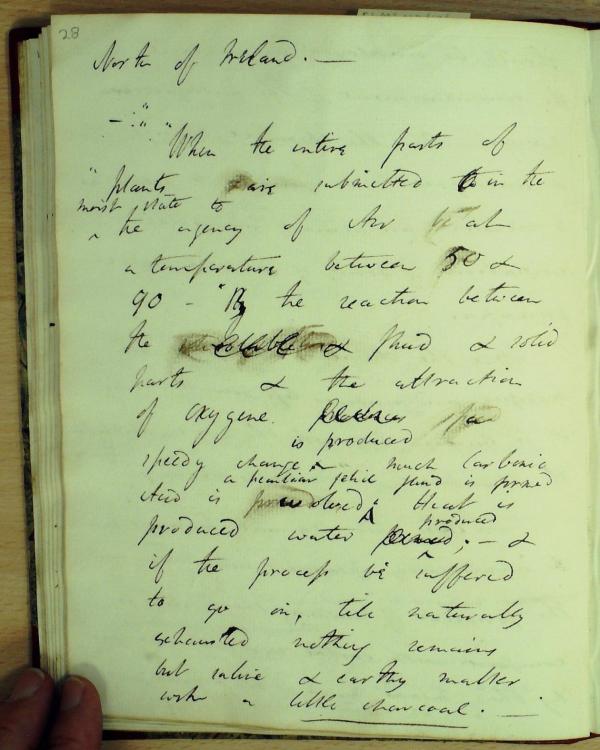 28
North of Ireland. —
— "When the entire parts of
"plants are submitted in the
moist state to
^ the agency of Air at
a temperature between 50 &
90 — "By the reaction between
the fluid & solid
parts & the attraction
of oxygene. a
is produced
speedy change ^ much Carbonic
a peculiar fetid fluid is formed
Acid is evolved; Heat is
produced
produced water ^; — &
if the process be suffered
to go on, till naturally
exhausted nothing remains
but saline & earthy matter
with a little charcoal. —